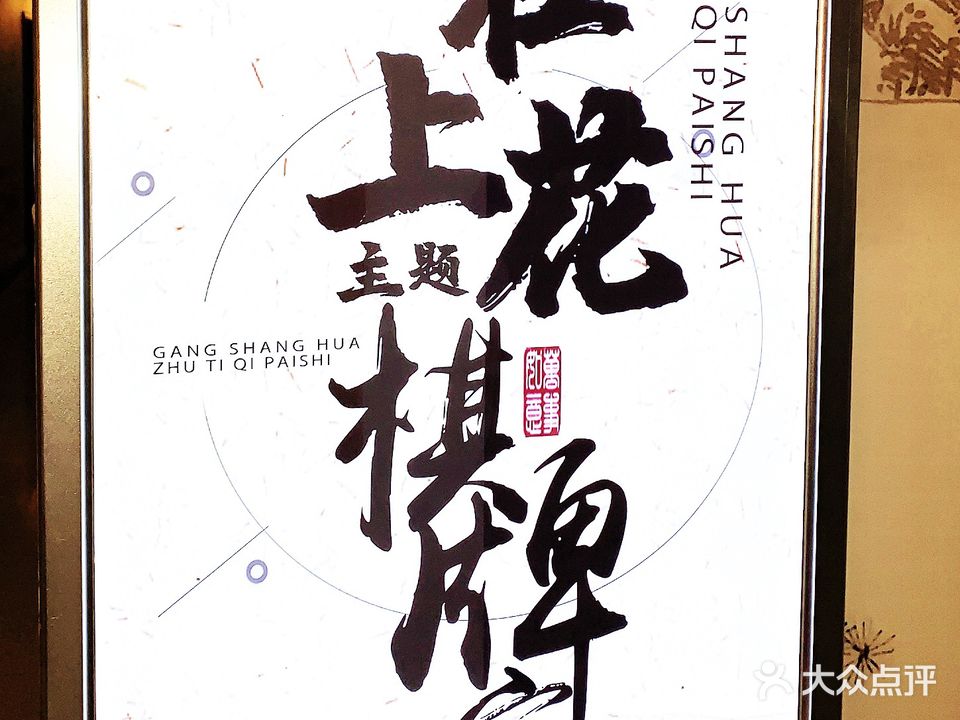 上花
主题
棋牌
SHANG HUA
QI PAISHI
GANG SHANG HUA
ZHU TI QI PAISHI
萬事
如意
大众点评